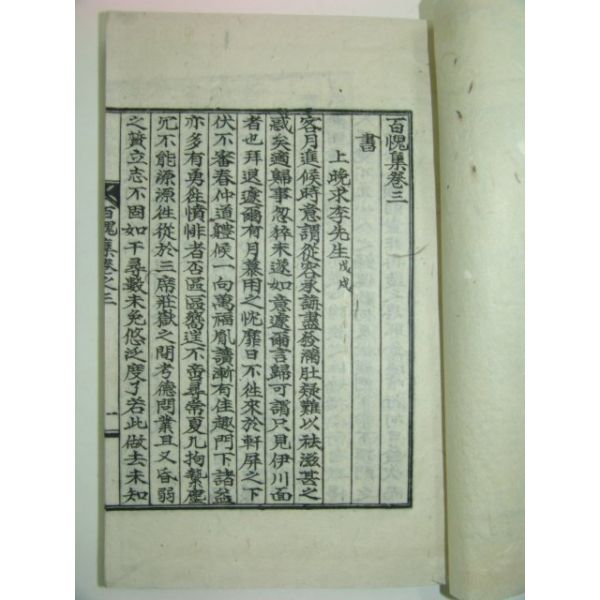 百愧集卷三
書
上晩求李先生 戊戌
客月進候時意謂從容承誨盡發滿肚疑難以祛滋甚之
惑矣適歸事忽猝未遂如意遽爾言歸可謂只見伊川面
者也拜退遽爾有月慕用之忱靡日不徃來於軒屛之下
伏不審春仲道體候一向萬福胤讀漸有佳趣門下諸益
亦多有勇徃憤悱者否區區嚮𨓏不啻尋常夏九拘縶塵
冗不能源源徃從於三席莊嶽之間考德問業且又昏弱
之質立志不固如干尋數未免悠泛度了若此做去未知
百愧集卷之三
一